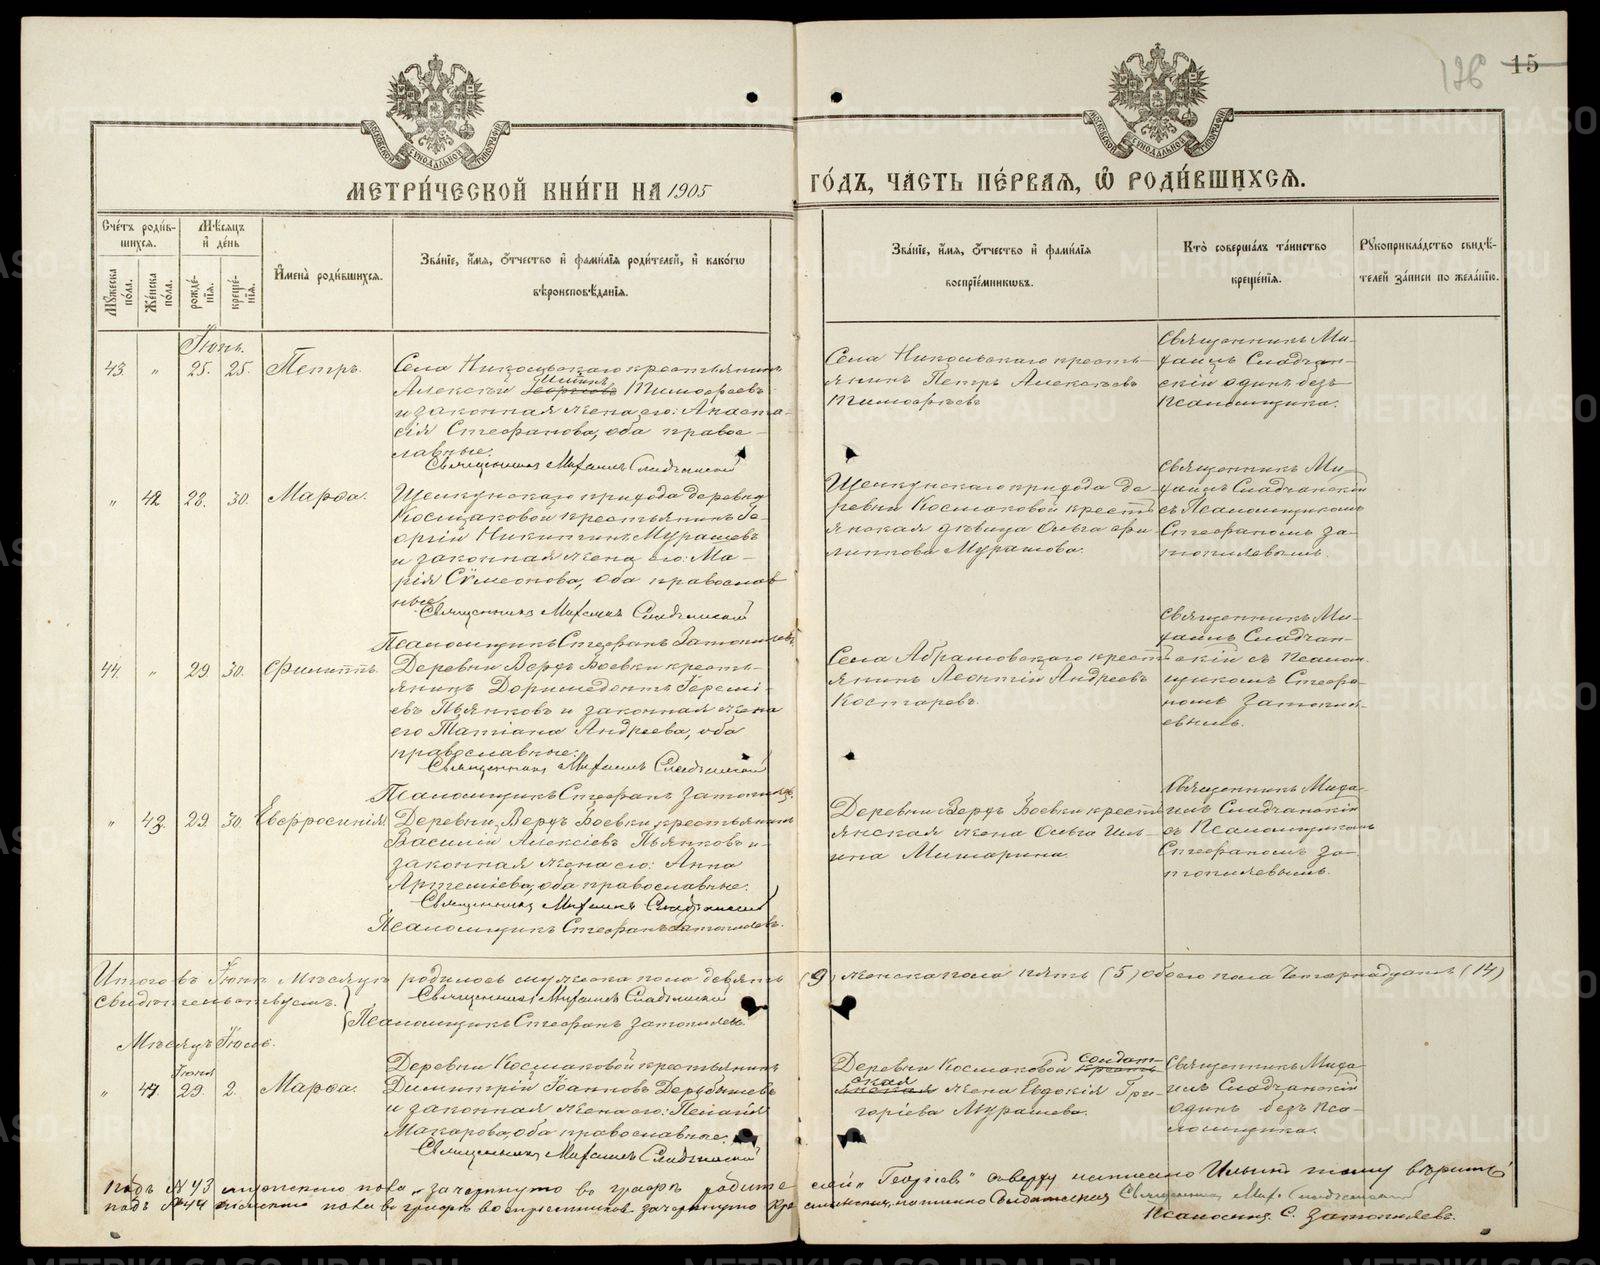 176 15
МЕТРИ́ЧЕСКОЙ КНИ́ГИ НА 1905 ГО́ДЪ, ЧА́СТЬ ПЕ́РВАЯ, Ѽ РОДИ́ВШИХСЯ.
МОСКОВСКОЙ СѴНОДАЛЬНОЙ ТИПОГРАФІИ
МОСКОВСКОЙ СѴНОДАЛЬНОЙ ТИПОГРАФІИ
Сче́тъ роди́в-
шихся.
Мꙋ́жеска по́ла.
Же́нска по́ла.
Мѣ́сяцъ
и҆ де́нь
рожде́-
нїѧ.
креще́-
нїѧ.
И҆мена̀ роди́вшихся.
Зва́нїе, и҆́мя, ѻ҆́тчество и҆ фами́лїя роди́телей, и҆ како́гѡ
вѣроисповѣ́данїя.
Зва́нїе, и҆́мя, ѻ҆́тчество и҆ фами́лїя
воспрїе́мникѡвъ.
Кто̀ соверша́лъ та́инство
креще́нїя.
Рꙋкоприкла́дство свидѣ́-
телей за́писи по жела́нїю.
Іюнь.
43. " 25. 25. Петръ.
Села Никольскаго крестьянинъ
Ильинъ
Алексѣй Георгіевъ Тимофеевъ
и законная жена его: Анаста-
сія Стефанова, оба правос-
лавные.
Священникъ Михаилъ Сладчанскій
Села Никольскаго кресть-
янинъ Петръ Алексѣевъ
Тимофѣевъ
Священникъ Ми-
хаилъ Сладчан-
скій одинъ безъ
псаломщика.
" 42. 28. 30. Марѳа.
Щелкунскаго прихода деревни
Космаковой крестьянинъ Ге-
оргій Никитинъ Мурашевъ
и законная жена его: Ма-
рія Сѵмеонова, оба православ
ные
Священникъ Михаилъ Сладчанскій
Псаломщикъ Стефанъ Затопляевъ
Щелкунскаго прихода де-
ревни Космаковой кресть
янская дѣвица Ольга Фи-
липпова Мурашова.
Священникъ Ми-
хаилъ Сладчанскій
съ Псаломщикомъ
Стефаномъ За-
топляевымъ.
44. " 29 30. Филиппъ.
Деревни Верхъ Боевки кресть-
янинъ Доримедонтъ Іеремі-
евъ Пьянковъ и законная жена
его Татіана Андреева, оба
православные:
Священникъ Михаилъ Сладчанскій
Псаломщикъ Стефанъ Затопляевъ.
Села Абрамовскаго крест
янинъ Леонтій Андреевъ
Костаревъ.
Священникъ Ми-
хаилъ Сладчан-
скій съ Псалом-
щикомъ Стефа-
номъ Затопля-
евымъ.
" 43. 29. 30. Евфросинія.
Деревни Верхъ Боевки, крестьянинъ
Василій Алексіевъ Пьянковъ и
законная жена его: Анна
Артеміева, оба православные.
Священникъ Михаилъ Сладчанскій
Псаломщикъ Стефанъ Затопляевъ.
Деревни Верхъ Боевки крест
янская жена Ольга Иль-
ина Мишарина.
Священникъ Миха-
илъ Сладчанскій
съ Псаломщикомъ
Стефаномъ За-
топляевымъ.
Итого въ Іюнѣ Мѣсяцѣ родилось мужеска пола девять (9) женска пола пять (5) обоего пола четырнадцать (14)
Свидѣтельствуемъ:
Священникъ Михаилъ Сладчанскій
Псаломщикъ Стефанъ Затопляевъ.
Мѣсяцъ Іюль.
Іюня
" 44. 29. 2. Марѳа.
Деревни Космаковой крестьянинъ
Димитрій Іоанновъ Дерябышевъ
и законная жена его: Пелагія
Макарова, оба православные.
Священникъ Михаилъ Сладчанскій
солдат-
Деревни Космаковой кресть
ская
янская жена Евдокія Гри-
горіева Мурашева.
Священникъ Миха-
илъ Сладчанскій
одинъ безъ Пса-
ломщика.
подъ №43 мужескаго пола, зачеркнуто въ графѣ родителей „Георгіев" сверху написано Ильинъ тому вѣрить
подъ №44 женскаго пола въ графѣ воспріемниковъ зачеркнуто Крестьянская, написано Солдатская Священникъ Мих. Сладчанскій
Псаломщ. С. Затопляевъ.
METRIKI.GASO-URAL.RU